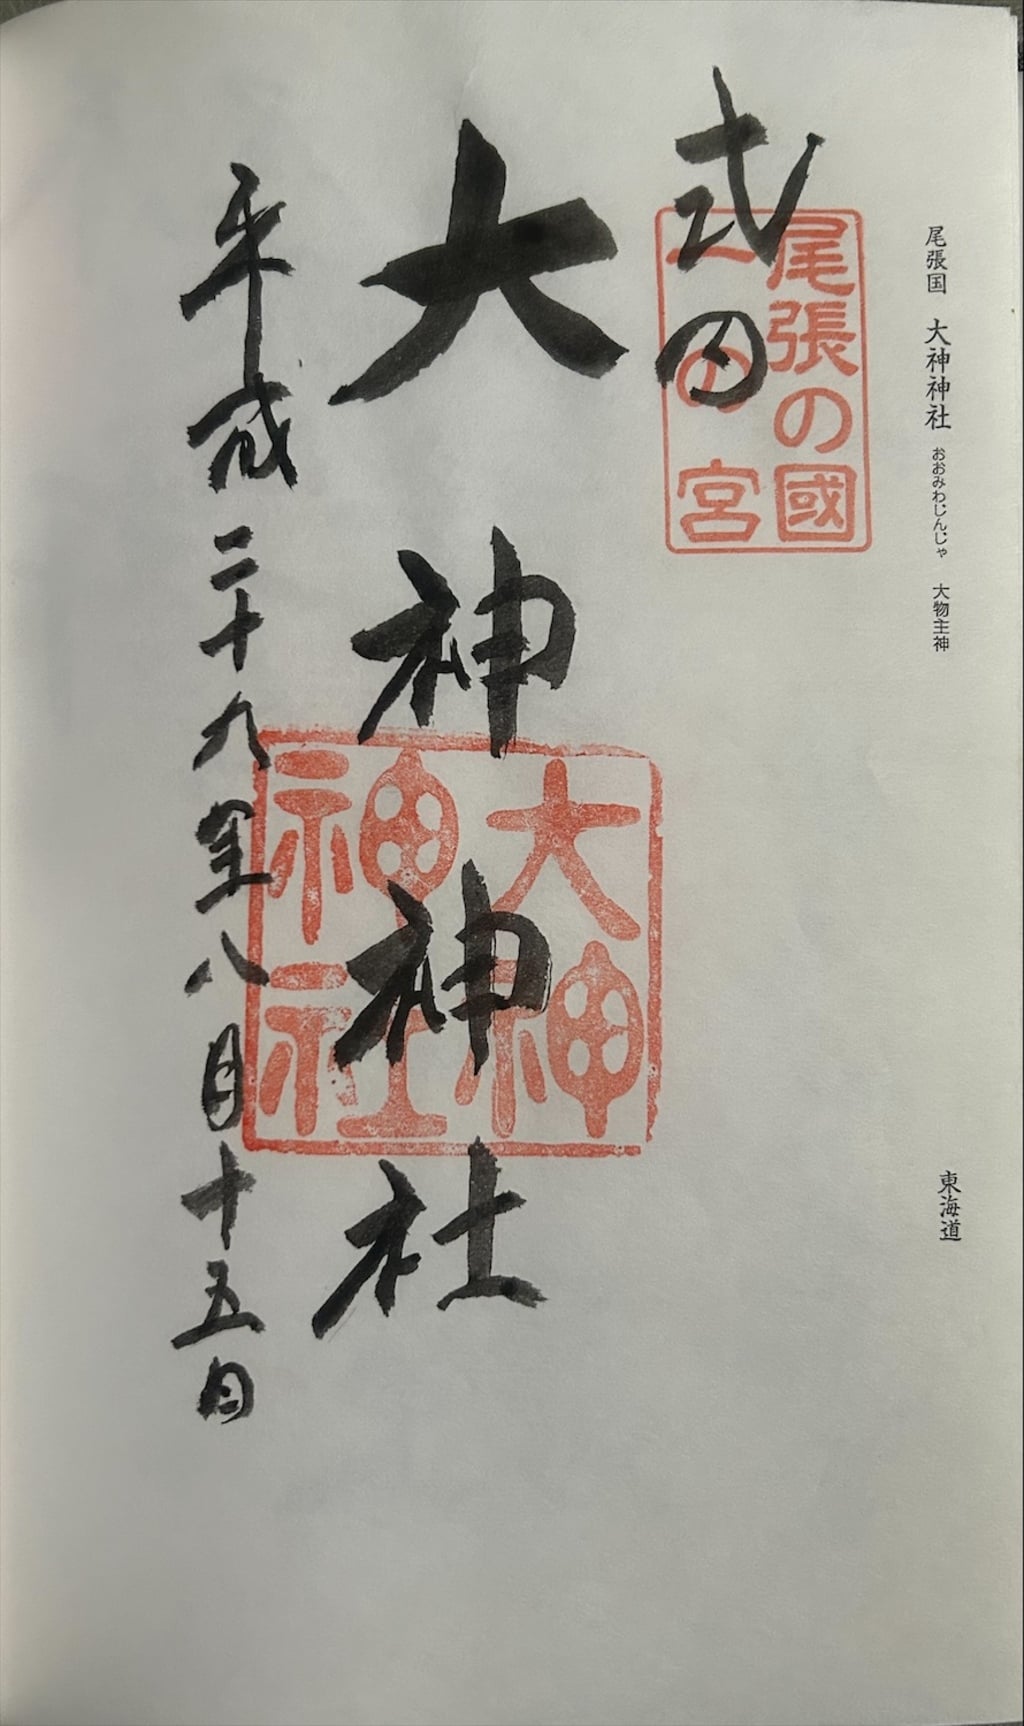 尾張国 大神神社 おおみわじんじゃ 大物主神 東海道
式内
尾張の國
一の宮
大神神社
大神
神社
平成二十九年八月十五日